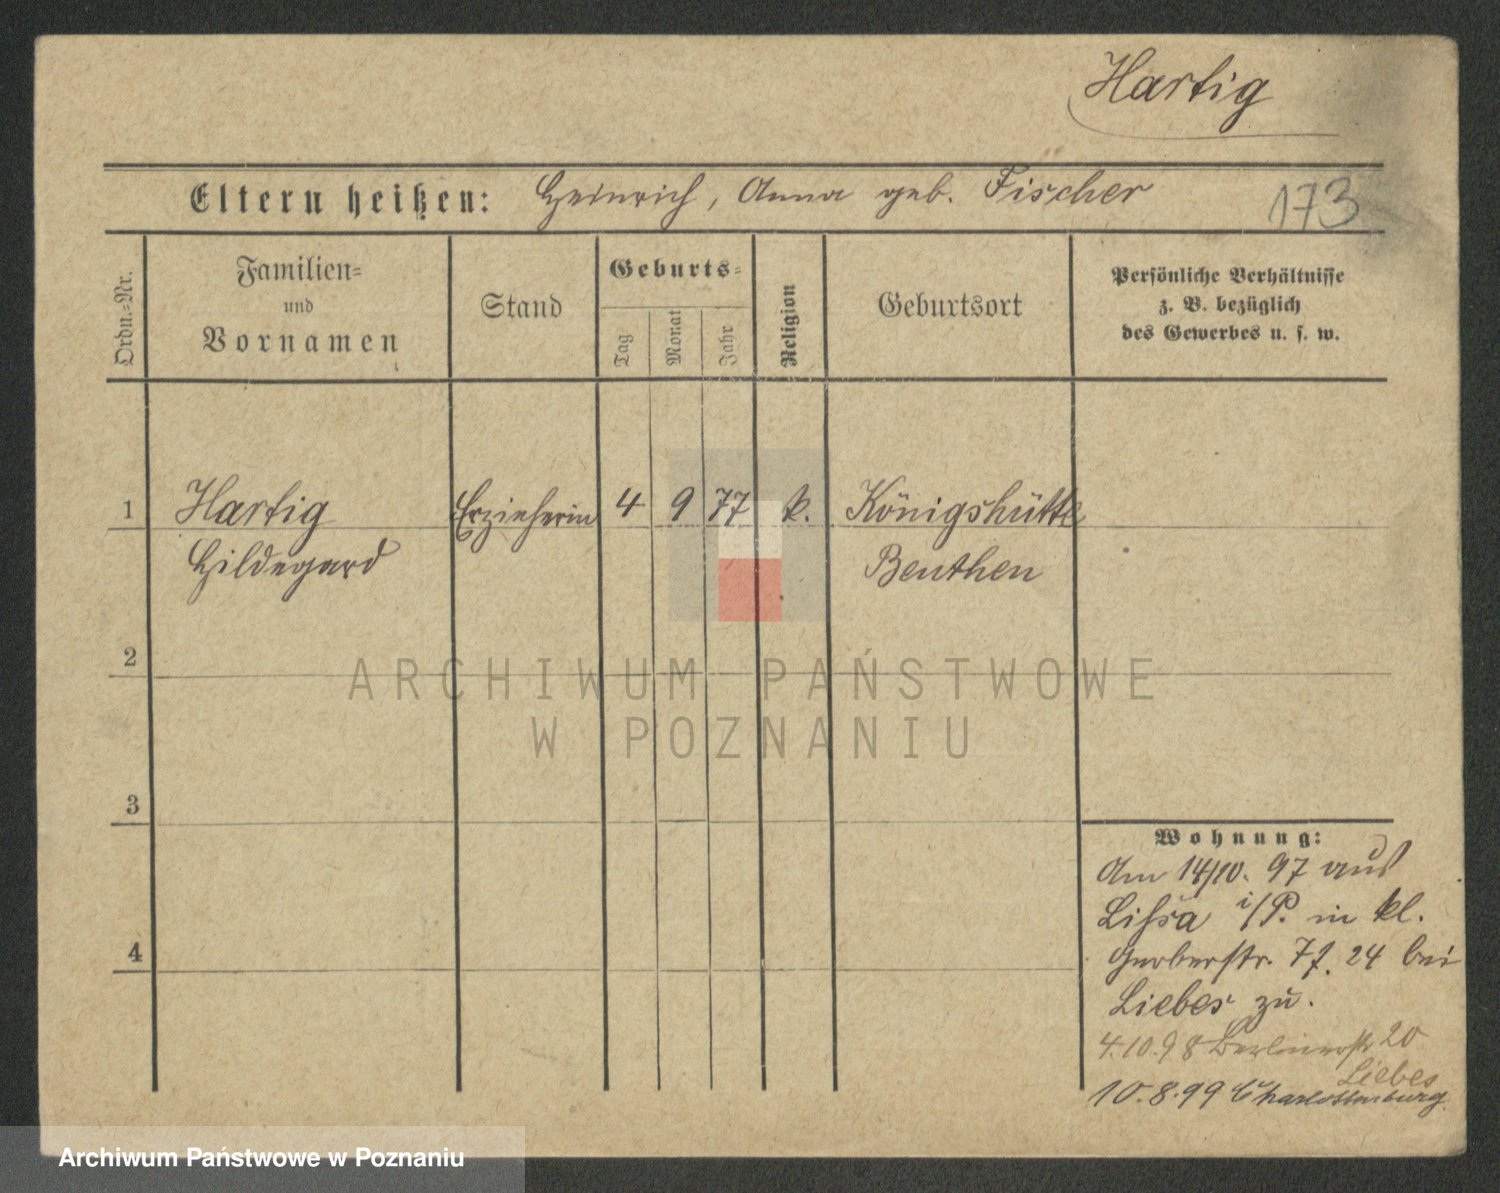 Hartig
Eltern heißen: Heinrich, Anna geb. Fischer
173
Ordn.-Nr.
Familien-
und
Vornamen
Stand
Geburts-
Tag
Monat
Jahr
Religion
Geburtsort
Persönliche Verhältnisse
z. B. bezüglich
des Gewerbes u. s. w.
1 Hartig Erzieherin 4 9 77 k. Königshütte
Hildegard Beuthen
2
ARCHIWUM PAŃSTWOWE
W POZNANIU
3
Wohnung:
Am 14/10. 97 aus
Lissa i/P. in kl.
Gerberstr. 24 bei
Liebes zu.
4.10.98 Berlinerstr 20
Liebes
10.8.99 Charlottenburg
4
Archiwum Państwowe w Poznaniu